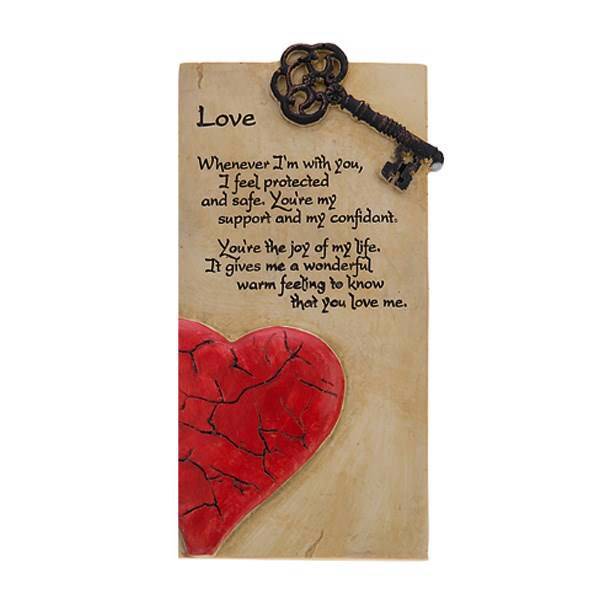 Love
Whenever I'm with you,
I feel protected
and safe. You're my
support and my confidant.
You're the joy of my life.
It gives me a wonderful
warm feeling to know
that you love me.